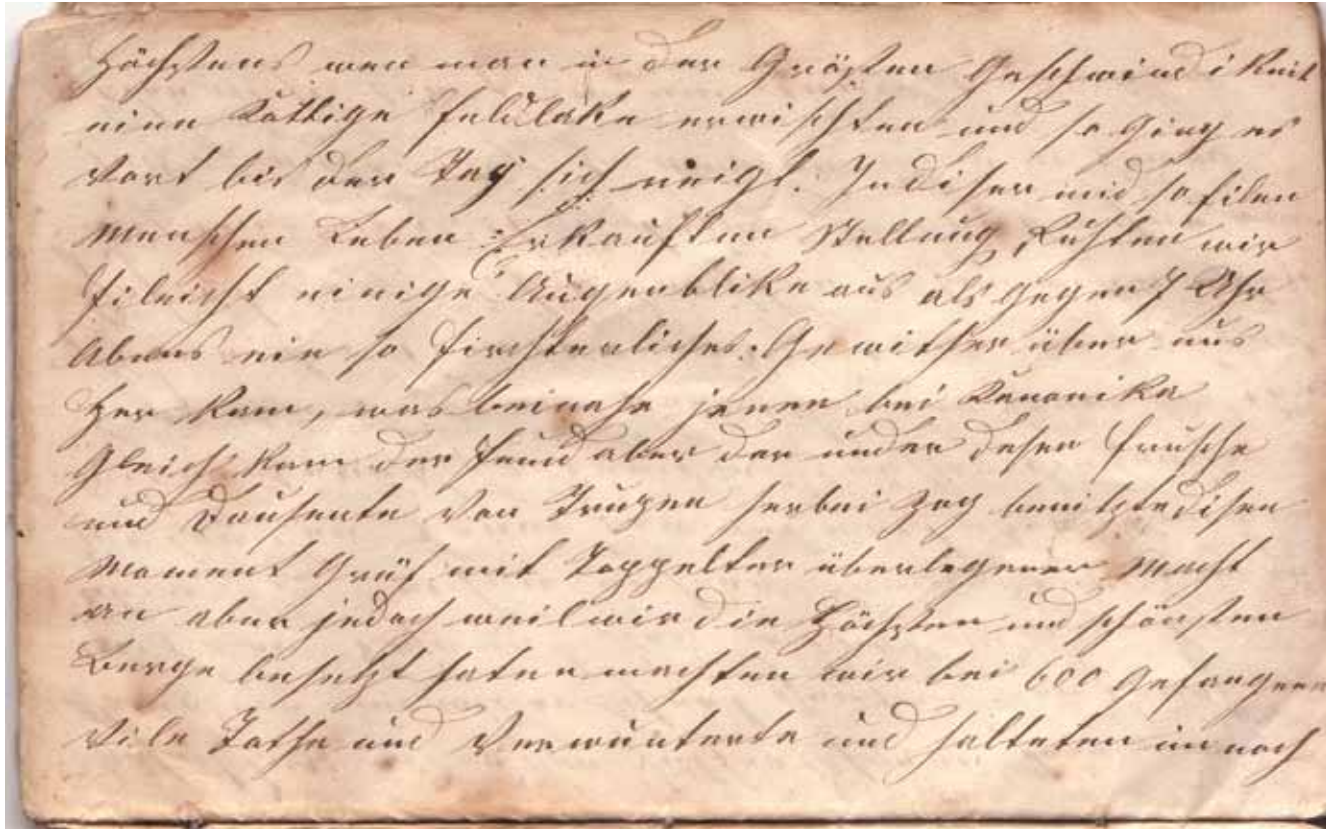 Höchstens wen man in der Grösten Geschwindikeit
eine Kottige Feldlake erwischten und so ging es
Vort bis der Tag sich neigt. In diser mid so filen
Menschen Leben Erkauften Stellung Ruhten wir
fileicht einige Augenblike aus als gegen 7 Uhr
Abens ein so firchterliches Gewitter über uns
Her kam, was beinahe jenen bei
Gleich kam der Feind aber der under deser frische
und Dausente von Trupen herbei zog benitzte disen
Moment Gräf mit Toppelter überlegener Macht
an aber jedoch weil wir die Höchsten und schönsten
Berge besetzt haten machten wir bei 600 Gefangene
Vile Tothe und Verwunterte und halteten im noch